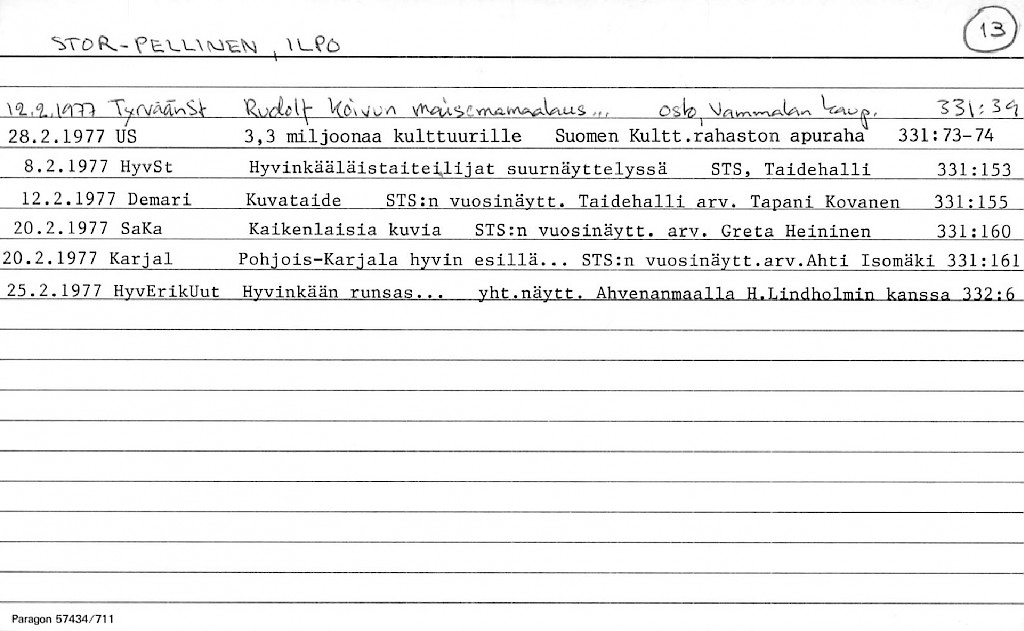 13
STOR-PELLINEN, ILPO
12.2.1977 TyrväänSt Rudolf Koivun maisemamaalaus... osto, Vammalan kaup. 331:39
28.2.1977 US 3,3 miljoonaa kulttuurille Suomen Kultt.rahaston apuraha 331:73-74
8.2.1977 HyvSt Hyvinkääläistaiteilijat suurnäyttelyssä STS, Taidehalli 331:153
12.2.1977 Demari Kuvataide STS:n vuosinäytt. Taidehalli arv. Tapani Kovanen 331:155
20.2.1977 SaKa Kaikenlaisia kuvia STS:n vuosinäytt. arv. Greta Heininen 331:160
20.2.1977 Karjal Pohjois-Karjala hyvin esillä... STS:n vuosinäytt.arv.Ahti Isomäki 331:161
25.2.1977 HyvErikUut Hyvinkään runsas... yht.näytt. Ahvenanmaalla H.Lindholmin kanssa 332:6
Paragon 57434/711